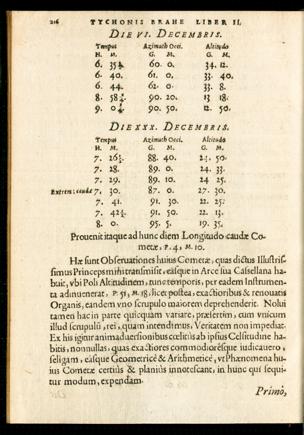 216 TYCHONIS BRAHE LIBER II.
DIE VI. DECEMBRIS.
Tempus Azimuth Occi. Altitudo
H. M. G. M. G. M.
6. 35 60. 0. 34. 12.
6. 40. 61. 0. 33. 40.
6. 44. 62. 0. 33. 8.
8. 58 90. 20. 13 18.
9. 0 90. 50. 12. 50.
DIE XXX. DECEMBRIS.
Tempus Azimuth Occi. Altitudo
H. M. G. M. G. M.
7. 26 88. 40. 24. 50.
7. 28. 89. 0. 24. 33.
7. 29. 89. 10. 24 25.
Extrem: caudæ 7. 30. 87. 0. 27. 30.
7. 41. 91. 30. 22. 25.
7. 42 91. 50. 22. 13.
8. 0. 95. 5. 19. 35.
Prouenit itaque ad hunc diem Longitudo caudæ Co-
metæ, P. 4, M. 10.
Hæ sunt Obseruationes huius Cometæ, quas dictus Illustris-
simus Princeps mihi transmisit, easque in Arce sua Cassellana ha-
buit, vbi Poli Altitudinem, tunc temporis, per eadem Instrumen-
ta adinuenerat, P. 51, M. 18, licet postea, exactioribus & renouatis
Organis, eandem vno scrupulo maiorem deprehenderit. Nolui
tamen hac in parte quicquam variare, præsertim, cum vnicum
illud scrupulũ, rei, quam intendimus, Veritatem non impediat.
Ex his igitur animaduersionibus cœlitus ab ipsius Celsitudine ha-
bitis, nonnullas, quas exactiores commodioresque iudicauero,
seligam, easque Geometricè & Arithmeticè, vt Phænomena hu-
ius Cometæ certiùs & planiùs innotescant, in hunc qui sequi-
tur modum, expendam.
Primò,